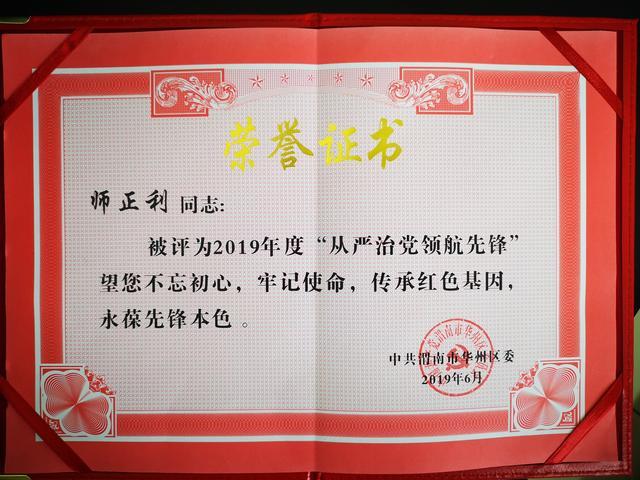 荣誉证书
师正利 同志:
被评为2019年度“从严治党领航先锋”
望您不忘初心，牢记使命，传承红色基因，
永葆先锋本色。
中共渭南市华州区委
2019年6月